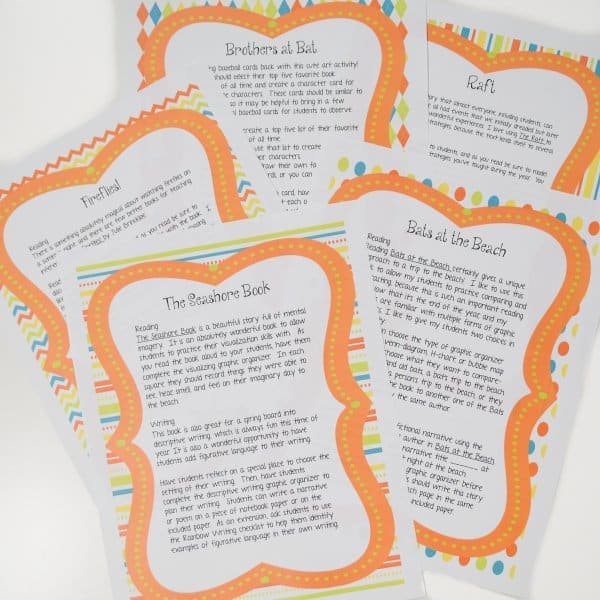 Brothers at Bat
ing baseball cards back with this cute art activity!
should select their top five favorite book
of all time and create a character card for
the characters. These cards should be similar to
so it may be helpful to bring in a few
baseball cards for students to observe
create a top five list of their favorite
of all time
use that list to create
their characters
draw their own to
or you can
card, have
Raft
story that almost everyone, including students, can
all had events that we initially dreaded but later
wonderful experiences. I love using The Raft to
strategies, because the text lends itself to several
to students, and as you read be sure to model
strategies you've taught during the year. You
Fireflies!
Reading
There is something absolutely magical about watching fireflies on
a summer night and there are few better books for teaching
by Julie Brinckloe.
as you read be sure to
with the book. I
Bats at the Beach
Reading
Reading Bats at the Beach certainly gives a unique
approach to a trip to the beach! I like to use this
to allow my students to practice comparing and
contrasting, because this is such an important reading
now that it's the end of the year and my
are familiar with multiple forms of graphic
I like to give my students two choices in
choose the type of graphic organizer
venn-diagram, H-chart or bubble map
choose what they want to compare-
and old bats, a bat's trip to the beach
persons trip to the beach, or they
the book to another one of the Bats
the same author.
fictional narrative using the
author in Bats at the Beach.
narrative title ______ at
night at the beach.
graphic organizer before
should write this story
each page in the same
included paper.
The Seashore Book
Reading
The Seashore Book is a beautiful story full of mental
imagery. It is an absolutely wonderful book to allow
students to practice their visualization skills with. As
you read the book aloud to your students, have them
complete the visualizing graphic organizer. In each
square they should record things they were able to
see, hear, smell, and feel on their imaginary day to
the beach.
Writing
This book is also great for a spring board into
descriptive writing, which is always fun this time of
year. It is also a wonderful opportunity to have
students add figurative language to their writing.
Have students reflect on a special place to choose the
setting of their writing. Then, have students
complete the descriptive writing graphic organizer to
plan their writing. Students can write a narrative
or poem on a piece of notebook paper or on the
included paper. As an extension, ask students to use
the Rainbow Writing checklist to help them identify
examples of figurative language in their own writing.